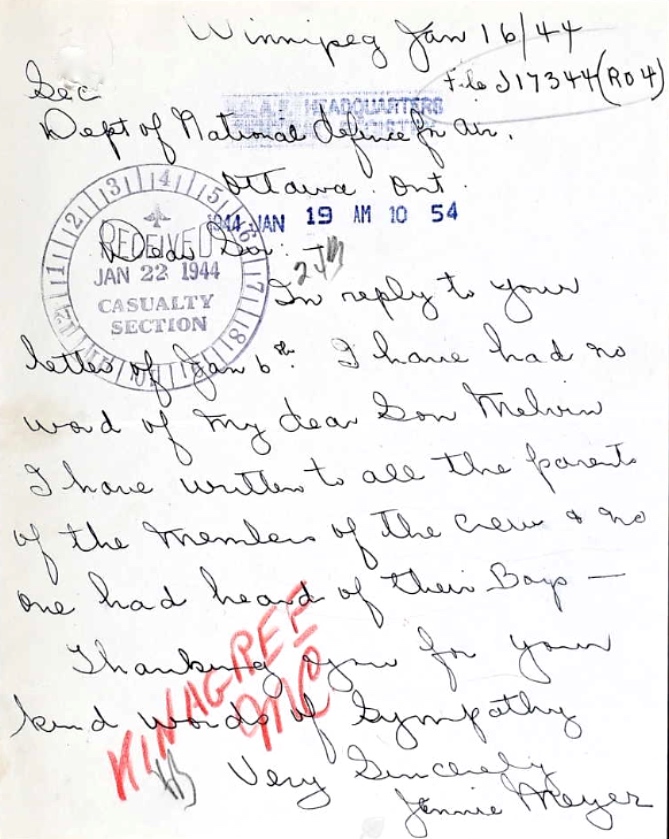 Winnipeg Jan 16/44
File J17344(RO4)
Sec
HEADQUARTERS
Dept of National defence for air.
Ottawa. Ont.
1944 JAN 19 AM 10 54
Dear Sir:
RECEIVED
JAN 22 1944
CASUALTY
SECTION
1 2 3 4 5 6 7 8
In reply to your
letter of Jan 6th. I have had no
word of my dear Son Melvin
I have written to all the parents
of the members of the crew & no
one had heard of their Boys —
Thanking you for your
kind words of Sympathy
Very Sincerely
Jennie Meyer